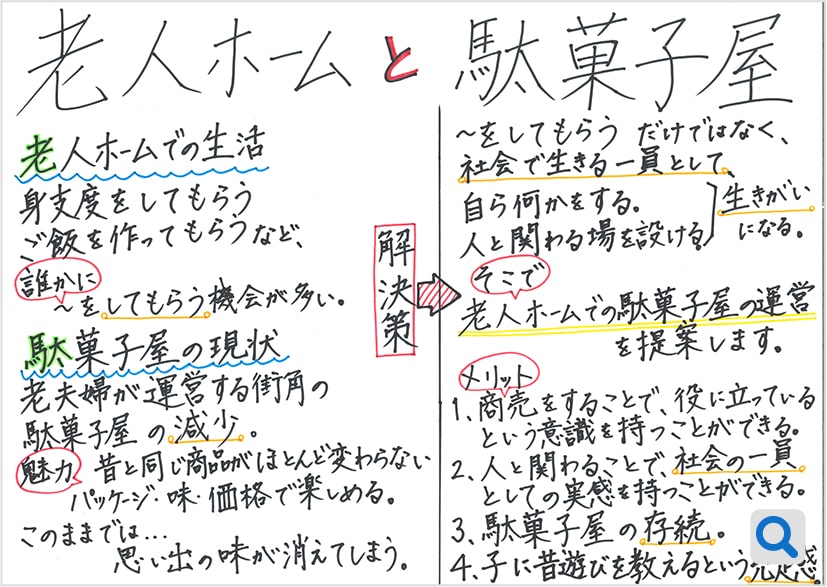 老人ホームと駄菓子屋
老人ホームでの生活
身支度をしてもらう
ご飯を作ってもらうなど、
誰かに
～をしてもらう機会が多い。
駄菓子屋の現状
老夫婦が運営する街角の
駄菓子屋の減少。
魅力 昔と同じ商品がほとんど変わらない
パッケージ・味・価格で楽しめる。
このままでは…
思い出の味が消えてしまう。
解決策
～をしてもらうだけではなく、
社会で生きる一員として、
自ら何かをする。
人と関わる場を設ける
生きがい
になる。
そこで
老人ホームでの駄菓子屋の運営
を提案します。
メリット
1、商売をすることで、役に立っている
という意識を持つことができる。
2、人と関わることで、社会の一員
としての実感を持つことができる。
3、駄菓子屋の存続。
4、子に昔遊びを教えるという